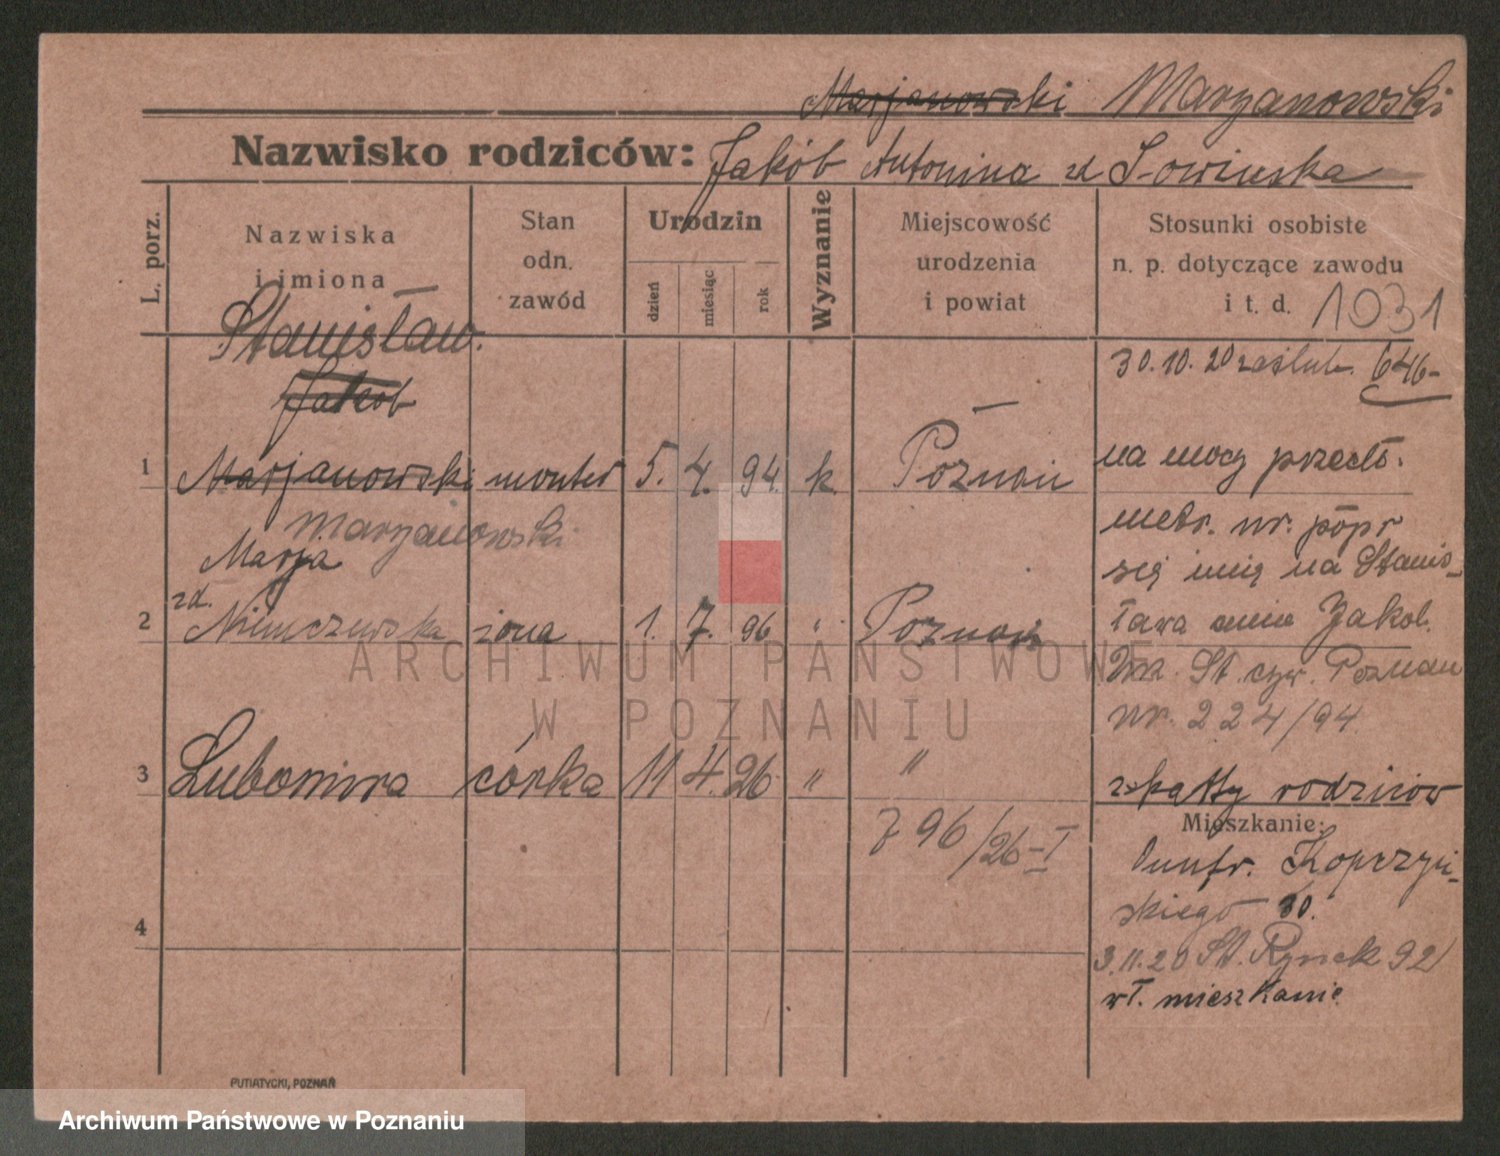 Marjanowski Maryanowski
Nazwisko rodziców: Jakób Antonina zd
L. porz.
Nazwiska i imiona
Stan odn. zawód
Urodzin
dzień
miesiąc
rok
Wyznanie
Miejscowość urodzenia i powiat
Stosunki osobiste n. p. dotyczące zawodu i t. d. 1931
Stanisław.
Jakób
30.10.20 zaślub. 646-
1 Marjanowski monter 5. 4. 94. k. Poznań
Maryanowski
na mocy przedł.
metr. nr. popr
się imię na Stanis-
ława Jakob.
St. cyw. Poznań
nr. 224/94
Marja
zd.
2 Niemczewska żona 1. 7. 96 " Poznań
3 Lubomira córka 11 4. 26. " "
rodziców
796/26-I
Mieszkanie:
skiego 30.
3.11.20 St. Rynek 92/
wł. mieszkanie
4
PUTIATYCKI, POZNAŃ
ARCHIWUM PAŃSTWOWE
W POZNANIU
Archiwum Państwowe w Poznaniu